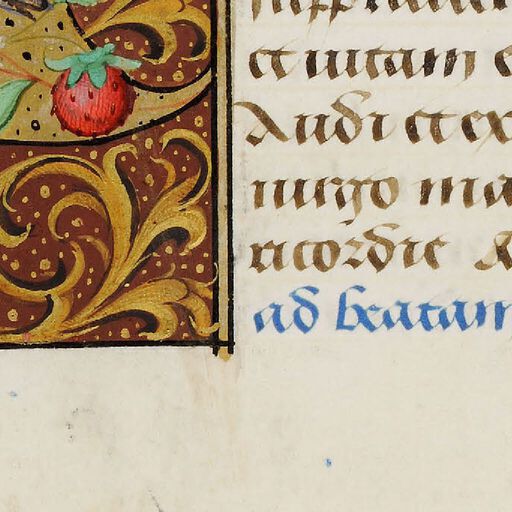 et uitam e
Audi et ex
uirgo ma
ricordie
ad beatam